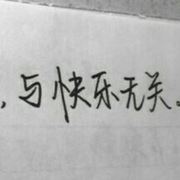 ，与快乐无关。